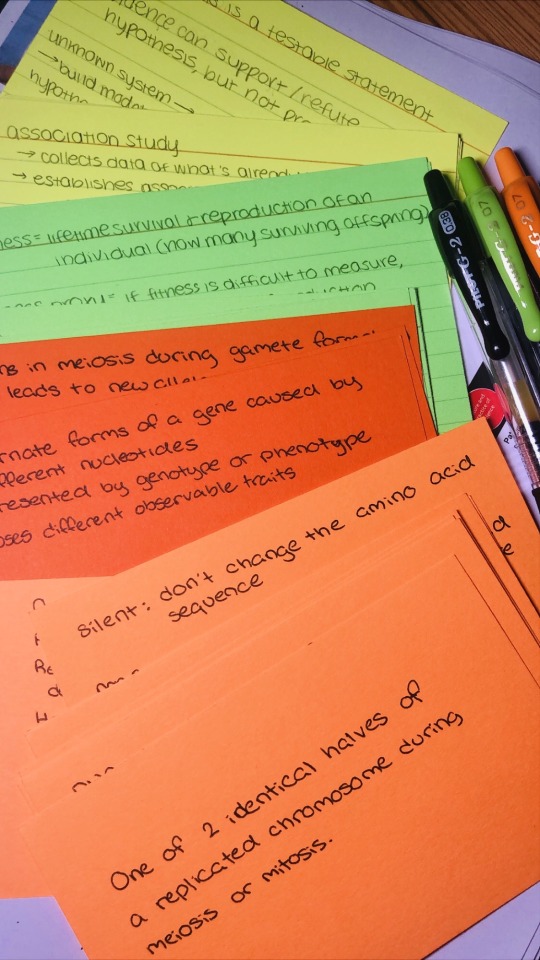 is a testable statement
dence can support/refute
hypothesis, but not
unknown system →
→ build
association study
→ collects data of what's
→ establishes
ness = lifetime survival & reproduction of an
individual (how many surviving offspring)
if fitness is difficult to measure,
ns in meiosis during gamete
leads to new
rnate forms of a gene caused by
fferent nucleotides
resented by genotype or phenotype
oses different observable traits
silent: don't change the amino acid
sequence
One of 2 identical halves of
a replicated chromosome during
meiosis or mitosis.
PILOT G-2 038
07
G-2 07